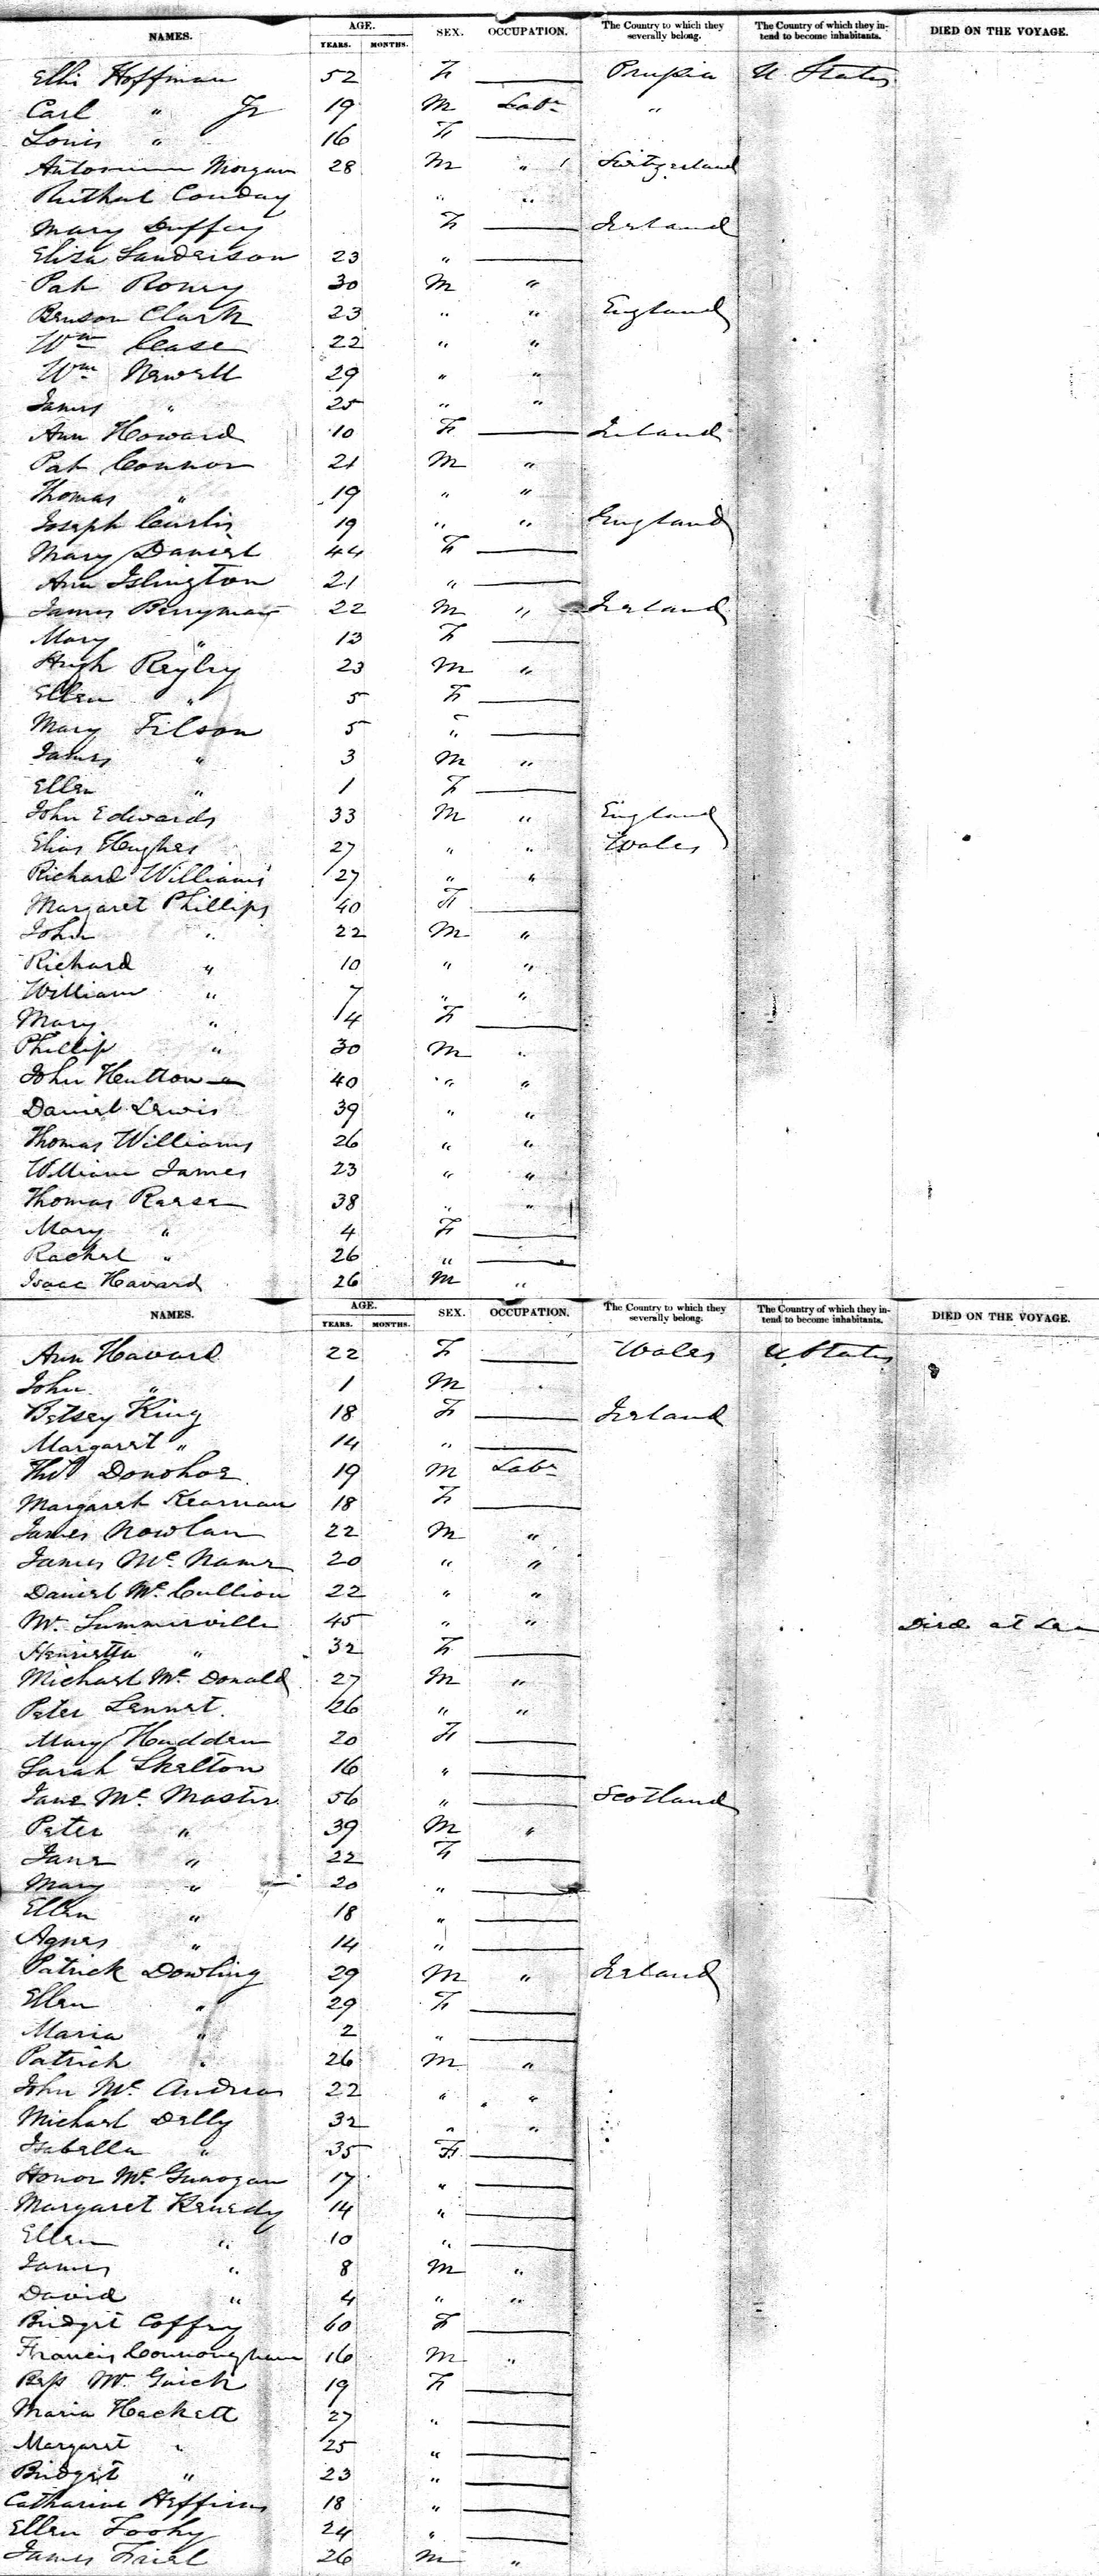 NAMES. AGE. YEARS. MONTHS. SEX. OCCUPATION. The Country to which they severally belong. The Country of which they intend to become inhabitants. DIED ON THE VOYAGE.
Hoffman 52 F — U States
Carl " Jr 19 M Labr "
Louis " 16 F —
Morgan 28 M " Switzerland
Conday " "
Mary Duffey F — Ireland
Eliza Sanderson 23 " —
Pat Roney 30 M "
Benson Clark 23 " " England
Wm Cease 22 " "
Wm Newell 29 " "
James " 25 " "
Ann Howard 10 F — Ireland
Pat Connor 21 M "
Thomas " 19 " "
Joseph Curtis 19 " " England
Mary Daniel 44 F —
Ann Islington 21 " —
James Berryman 22 M " Ireland
Mary " 13 F —
Hugh Reyley 23 M "
Ellen " 5 F —
Mary Filson 5 " —
James " 3 M "
Ellen " 1 F —
John Edwards 33 M " England
Elias Hughes 27 " " Wales
Richard Williams 27 " "
Margaret Phillips 40 F —
John " 22 M "
Richard " 10 " "
William " 7 " "
Mary " 4 F —
Phillip " 30 M "
John Hutton 40 " "
Daniel Lewis 39 " "
Thomas Williams 26 " "
William James 23 " "
Thomas Reese 38 " "
Mary " 4 F —
Rachel " 26 " —
Isaac Havard 26 M "
NAMES. AGE. YEARS. MONTHS. SEX. OCCUPATION. The Country to which they severally belong. The Country of which they intend to become inhabitants. DIED ON THE VOYAGE.
Ann Havard 22 F — Wales U States
John " 1 M
Betsey King 18 F — Ireland
Margaret " 14 " —
Donohoe 19 M Labr
Margaret Kearnan 18 F —
James Nowlan 22 M "
James Mc Name 20 " "
Daniel Mc Cullion 22 " "
Mr Summerville 45 " " Died at
Henrietta " 32 F —
Michael Mc Donald 27 M "
Peter Lennet 26 " "
Mary Hadden 20 F —
Sarah Skelton 16 " —
Jane Mc Master 56 " — Scotland
Peter " 39 M "
Jane " 22 F —
Mary " 20 " —
Ellen " 18 " —
Agnes " 14 " —
Patrick Dowling 29 M " Ireland
Ellen " 29 F —
Maria " 2 " —
Patrick " 26 M "
John Mc Andrew 22 " "
Michael Delly 32 " "
Isabella " 35 F —
Honor Mc 17 " —
Margaret Kenedy 14 " —
Ellen " 10 " —
James " 8 M "
David " 4 " "
Bridget Coffey 60 F —
Francis 16 M "
Bess 19 F —
Maria Hackett 27 " —
Margaret " 25 " —
Bridget " 23 " —
Catharine Heffirns 18 " —
Ellen Toohy 24 " —
James Friel 26 M "